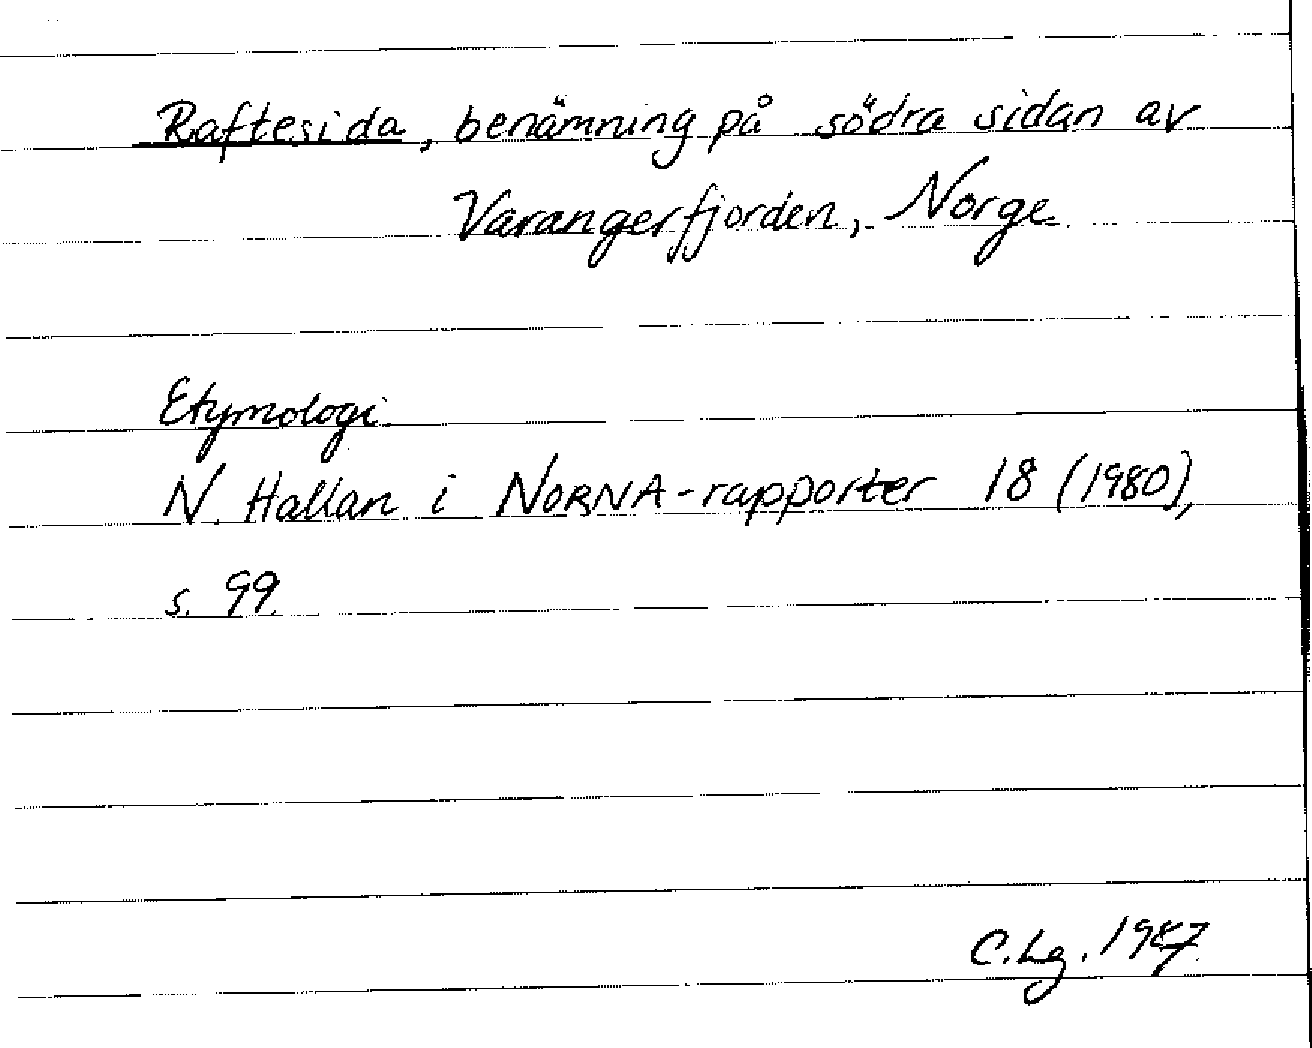 Raftesida, benämning på södra sidan av
Varangerfjorden, Norge
Etymologi
N. Hallan i NORNA-rapporter 18 (1980),
s. 99.
C.Lg. 1987